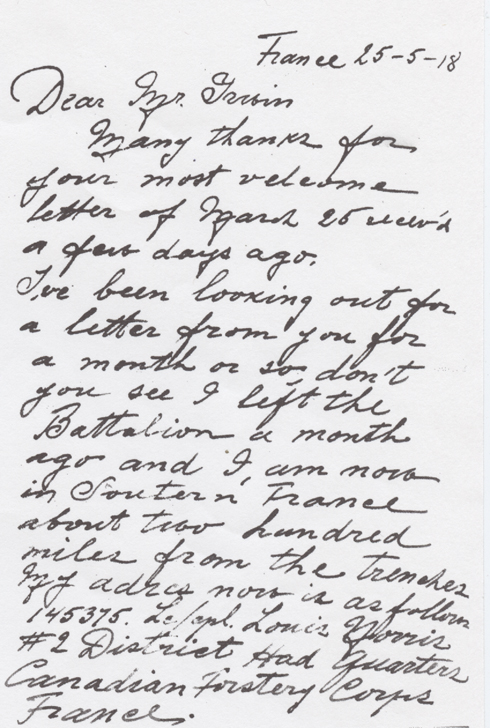 France 25-5-18
Dear Mr. Irwin
Many thanks for
your most velcome
letter of March 25 recev'd
a few days ago.
I've been looking out for
a letter from you for
a month or so, don't
you see I left the
Battalion a month
ago and I, am now
in Soutern France
about two hundred
miles from the trenches
My adres now is as follows
145375. Le/cpl. Louis
#2 District Had Quarters
Canadian Forstery Corps
France.